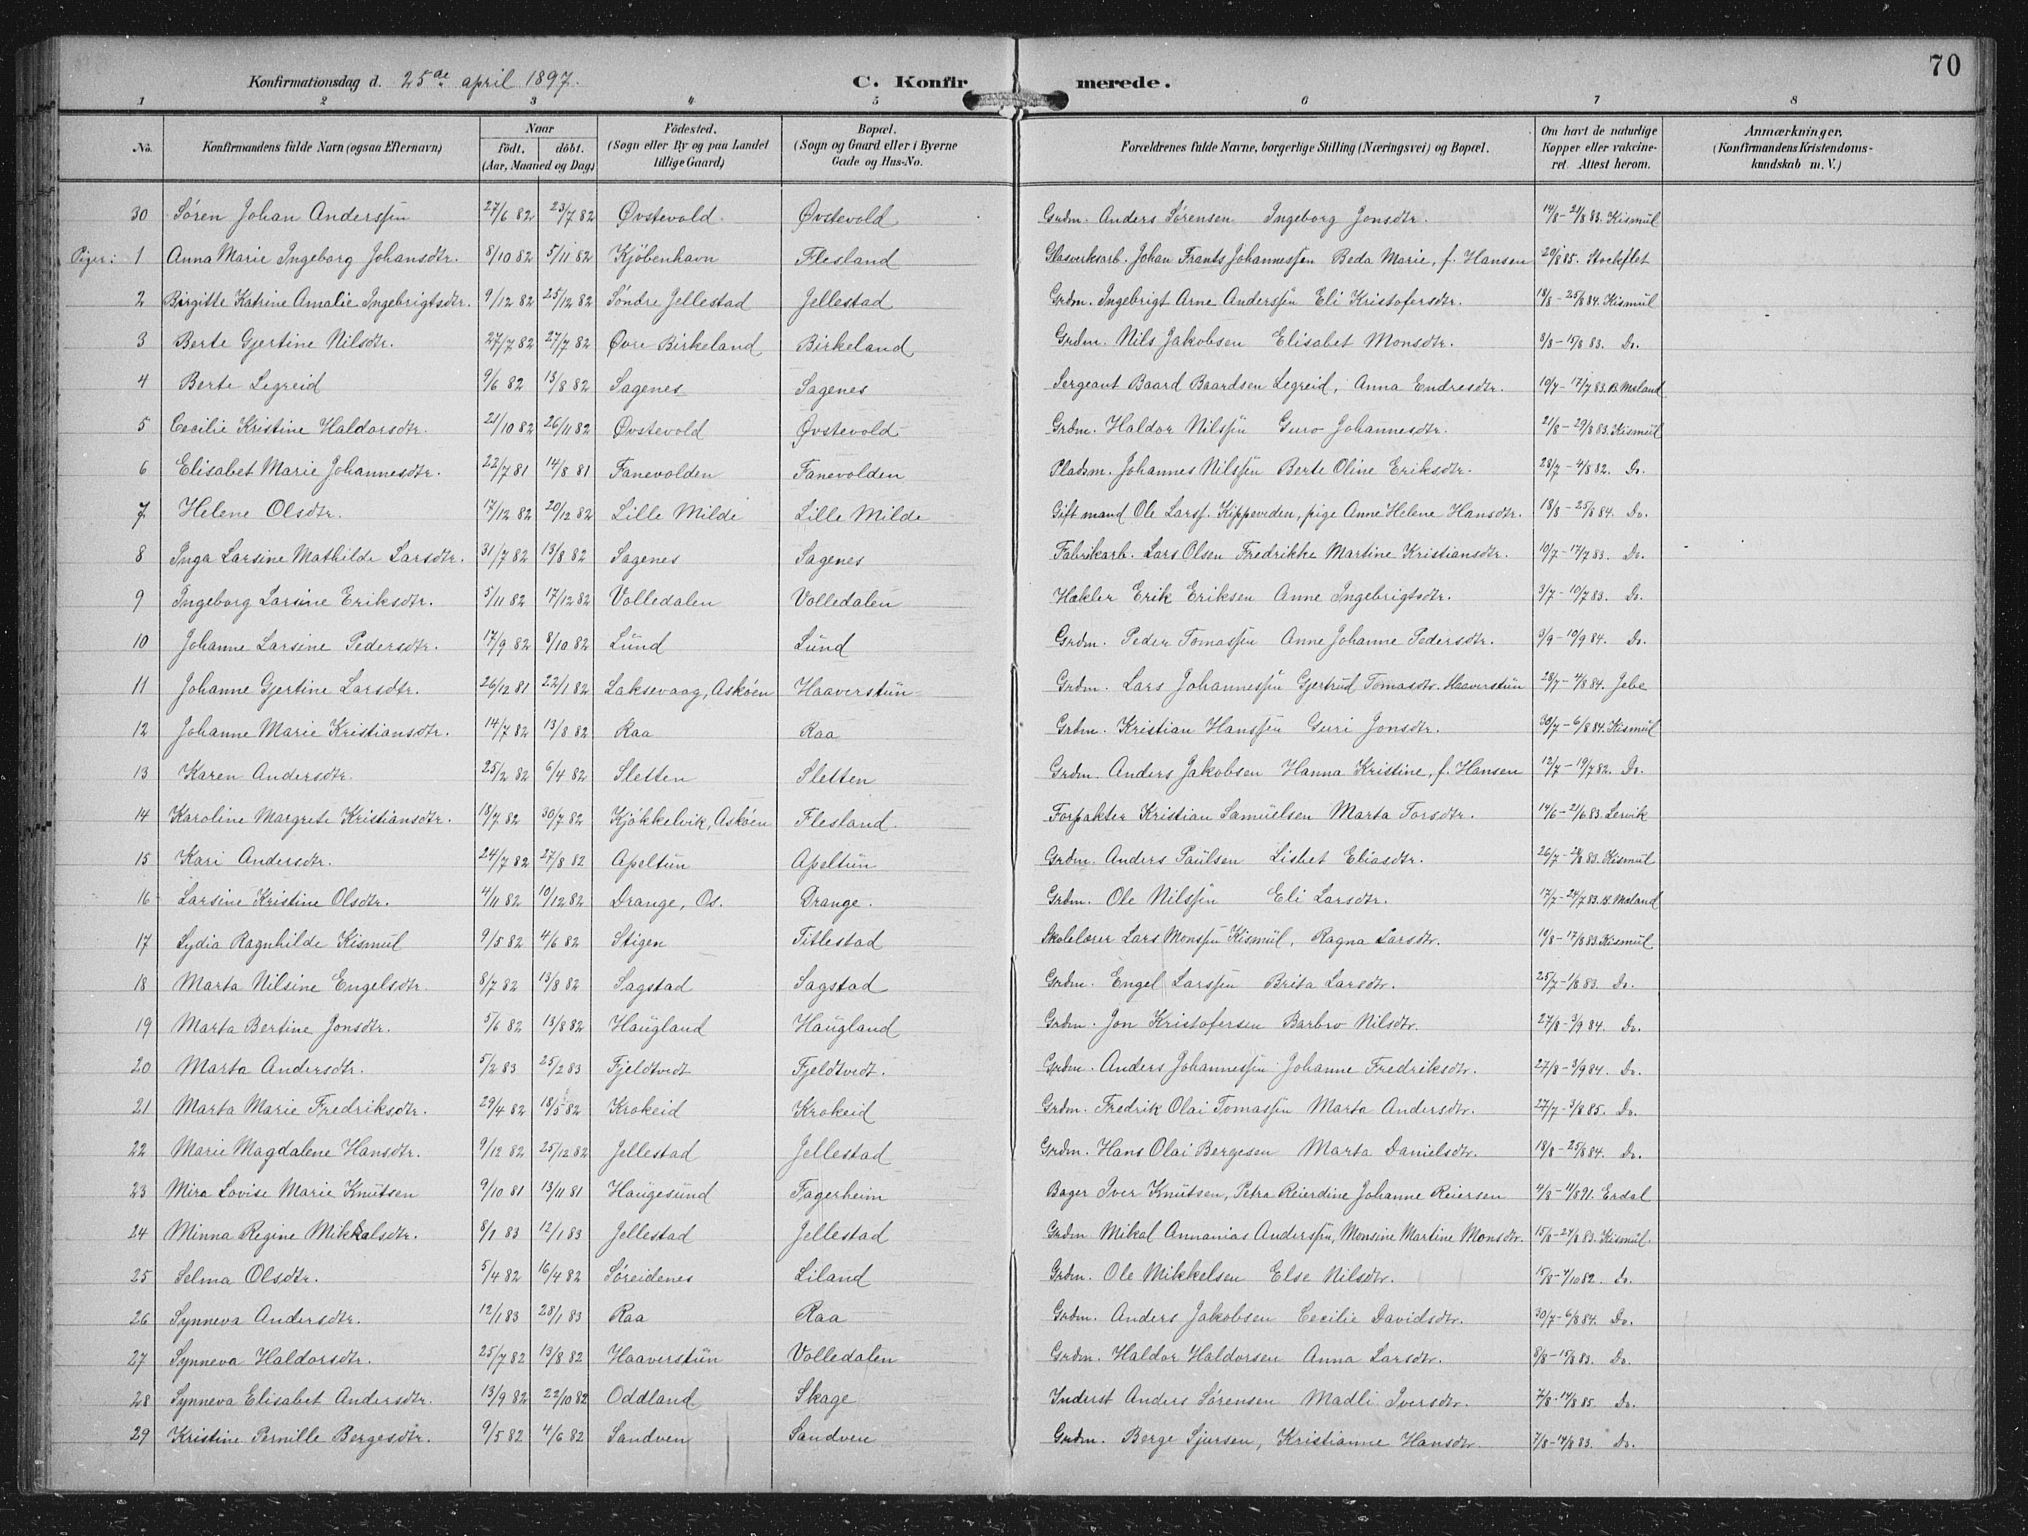 70
Konfirmationsdag d. 25de april 1897. C. Konfirmerede.
1 2 3 4 5 6 7 8
No. Konfirmandens fulde Navn (ogsaa Efternavn) Naar født. døbt. (Aar, Maaned og Dag) Fødested. (Sogn eller By og paa Landet tillige Gaard) Bopæl. (Sogn og Gaard eller i Byerne Gade og Hus-No. Forældrenes fulde Navne, borgerlige Stilling (Næringsvei) og Bopæl. Om havt de naturlige Kopper eller vakcineret. Attest herom. Anmærkninger. (Konfirmandens Kristendomskundskab m. V.)
30 Søren Johan Anderssen 27/6 82 23/7 82 Øvstevold Øvstevold Grdm. Anders Sørensen Ingeborg Jonsdtr. 14/8-21/8 83. Kismul
Piger: 1 Anna Marie Ingeborg Johansdtr. 8/10 82 5/11 82 Kjøbenhavn Flesland Glasverksarb. Johan Frants Johannessen Beda Marie, f. Hansen 20/8 85. Stockflet
2 Birgitte Katrine Amalie Ingebrigtsdtr. 9/12 82 25/12 82 Søndre Jellestad Jellestad Grdm. Ingebrigt Arne Anderssen Eli Kristofersdtr. 18/8-25/8 84. Kismul
3 Berte Gjertine Nilsdtr. 27/7 82 27/7 82 Øvre Birkeland Birkeland Grdm. Nils Jakobsen Elisabet Monsdtr. 8/8-15/8 83. Do.
4 Berte Legreid 9/6 82 13/8 82 Sagenes Sagenes Sergeant Baard Baardsen Legreid, Anna Endresdtr. 10/7-17/7 83. B. Moland
5 Cecilie Kristine Haldorsdtr. 21/10 82 26/11 82 Øvstevold Øvstevold Grdm. Haldor Nilssen Guro Johannesdtr. 21/8-29/8 83. Kismul
6 Elisabet Marie Johannesdtr. 22/7 81 14/8 81 Fanevolden Fanevolden Pladsm. Johannes Nilssen Berte Oline Eriksdtr. 28/7-4/8 82. Do.
7 Helene Olsdtr. 17/12 82 20/12 82 Lille Milde Lille Milde Gift mand Ole Larss. Kippeveden, pige Anne Helene Hansdtr. 18/8-25/8 84. Do.
8 Inga Larsine Mathilde Larsdtr. 31/7 82 13/8 82 Sagenes Sagenes Fabrikarb. Lars Olsen Fredrikke Martine Kristiansdtr. 10/7-17/7 83. Do.
9 Ingeborg Larsine Eriksdtr. 5/11 82 17/12 82 Volledalen Volledalen Hækler Erik Eriksen Anne Ingebrigtsdtr. 3/7-10/7 83. Do.
10 Johanne Larsine Pedersdtr. 17/9 82 8/10 82 Lund Lund Grdm. Peder Tomassen Anne Johanne Pedersdtr. 3/9-10/9 84. Do.
11 Johanne Gjertine Larsdtr. 26/12 81 22/1 82 Laksevaag, Askøen Haaverstun Grdm. Lars Johannessen Gjertrud Tomasdtr. Haaverstun 28/7-4/8 84. Jebe
12 Johanne Marie Kristiansdtr. 14/7 82 13/8 82 Raa Raa Grdm. Kristian Hanssen Guri Jonsdtr. 30/7-6/8 84. Kismul
13 Karen Andersdtr. 25/2 82 6/4 82 Sletten Sletten Grdm. Anders Jakobsen Hanna Kristine, f. Hansen 12/7-19/7 82. Do.
14 Karoline Margrete Kristiansdtr. 18/7 82 30/7 82 Kjøkkelvik, Askøen Flesland. Forpakter Kristian Samuelsen Marta Torsdtr. 14/6-21/6 83. Lervik
15 Kari Andersdtr. 24/7 82 27/8 82 Apeltun Apeltun Grdm. Anders Paulsen Lisbet Eliasdtr. 26/7- 83. Kismul
16 Larsine Kristine Olsdtr. 4/11 82 10/12 82 Drange, Os. Drange. Grdm. Ole Nilssen Eli Larsdtr. 17/7-24/7 83. B. Moland
17 Lydia Ragnhilde Kismul 9/5 82 4/6 82 Stigen Titlestad Skolelærer Lars Monssen Kismul, Ragna Larsdtr. 10/8-17/8 83. Kismul
18 Marta Nilsine Engelsdtr. 8/7 82 13/8 82 Sagstad Sagstad Grdm. Engel Larssen Brita Larsdtr. 25/7-1/8 83. Do.
19 Marta Bertine Jonsdtr. 5/6 82 13/8 82 Haugland Haugland Grdm. Jon Kristofersen Barbro Nilsdtr. 27/8-3/9 84. Do.
20 Marta Andersdtr. 5/2 83 25/2 83 Fjeldtvedt Fjeldtvedt. Grdm. Anders Johannessen Johanne Fredriksdtr. 27/8-3/9 84. Do.
21 Marta Marie Fredriksdtr. 29/4 82 18/5 82 Krokeid Krokeid Grdm. Fredrik Olai Tomassen Marta Andersdtr. 27/7-3/8 85. Do.
22 Marie Magdalene Hansdtr. 9/12 82 25/12 82 Jellestad Jellestad Grdm. Hans Olai Bergesen Marta Danielsdtr. 18/8-25/8 84. Do.
23 Mira Lovise Marie Knutsen 9/10 81 13/11 81 Haugesund Fagerheim Bager Iver Knutsen, Petra Reierdine Johanne Reiersen 4/8-11/8 91. Erdal
24 Minna Regine Mikkalsdtr. 8/1 83 12/1 83 Jellestad Jellestad Grdm. Mikal Annanias Anderssen, Monsine Martine Monsdtr. 83. Kismul.
25 Selma Olsdtr. 5/4 82 16/4 82 Søreidenes Liland Grdm. Ole Mikkelsen Else Nilsdtr. 82. Do.
26 Synneva Andersdtr. 12/1 83 28/1 83 Raa Raa Grdm. Anders Jakobsen Cecilie Davidsdtr. 30/7-6/8 84. Do.
27 Synneva Haldorsdtr. 25/7 82 13/8 82 Haaverstun Volledalen Grdm. Haldor Haldorsen Anna Larsdtr. 8/8-15/8 83. Do.
28 Synneva Elisabet Andersdtr. 13/9 82 22/10 82 Oddland Skage Inderst Anders Sørensen Madli Iversdtr. 7/8-14/8 85. Do.
29 Kristine Pernille Bergesdtr. 9/5 82 4/6 82 Sandven Sandven Grdm. Berge Sjursen, Kristianne Hansdtr. 7/8-14/8 83. Do.